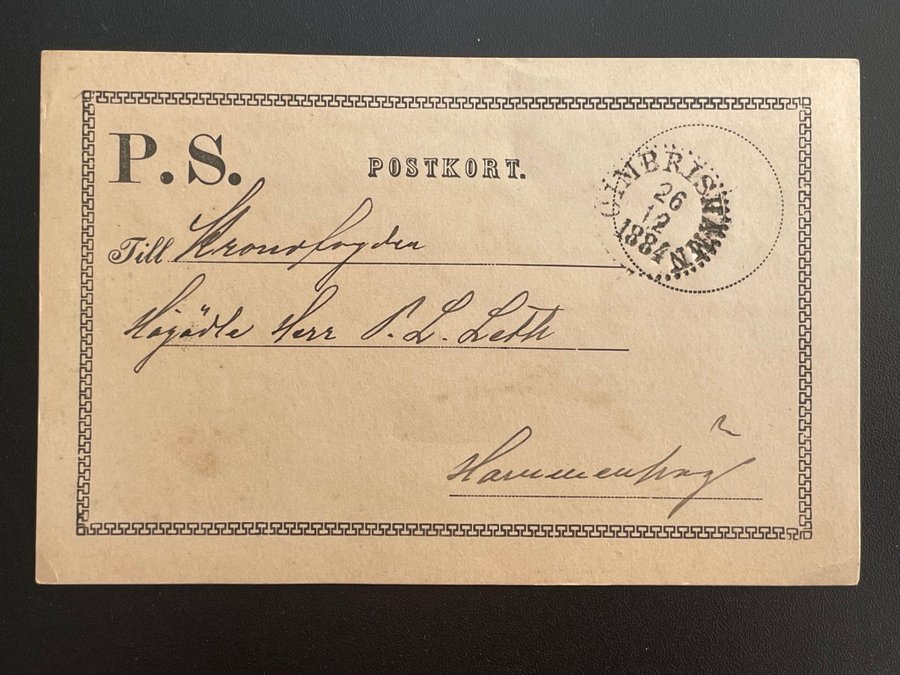 P.S.
POSTKORT.
CIMBRISHAMN
26
12
1884
Till Kronofogden
Högädle Herr P. L. Leth
Hammenhög